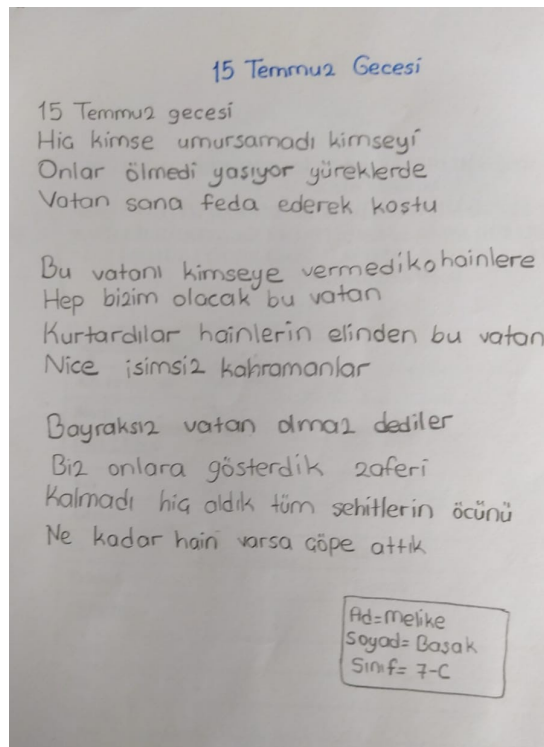 15 Temmuz Gecesi
15 Temmuz gecesi
Hiç kimse umursamadı kimseyi
Onlar ölmedi yaşıyor yüreklerde
Vatan sana feda ederek koştu
Bu vatanı kimseye vermedik o hainlere
Hep bizim olacak bu vatan
Kurtardılar hainlerin elinden bu vatan
Nice isimsiz kahramanlar
Bayraksız vatan olmaz dediler
Biz onlara gösterdik zaferi
Kalmadı hiç aldık tüm şehitlerin öcünü
Ne kadar hain varsa çöpe attık
Ad=Melike
Soyad=Başak
Sınıf=7-C